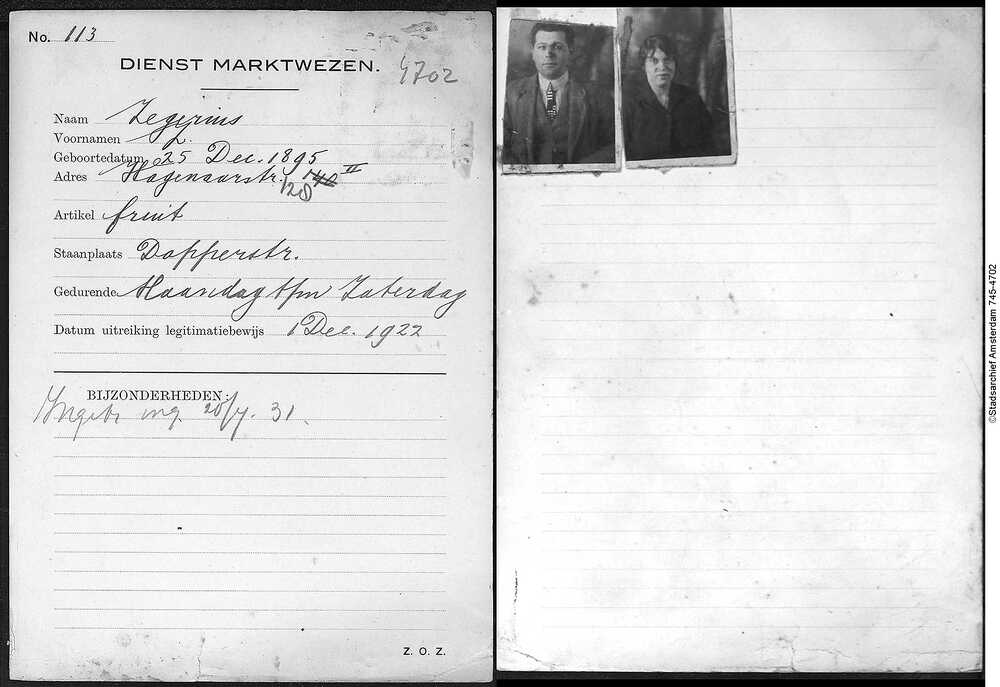 No. 113
DIENST MARKTWEZEN.
4702
Naam Zegerius
Voornamen L.
Geboortedatum 25 Dec. 1895
Adres Hagenaarstr. 140 II
128
Artikel fruit
Staanplaats Dapperstr.
Gedurende Maandag t/m Zaterdag
Datum uitreiking legitimatiebewijs 1 Dec. 1922
BIJZONDERHEDEN:
ing. 20/7. 31.
Z. O. Z.
©Stadsarchief Amsterdam 745-4702